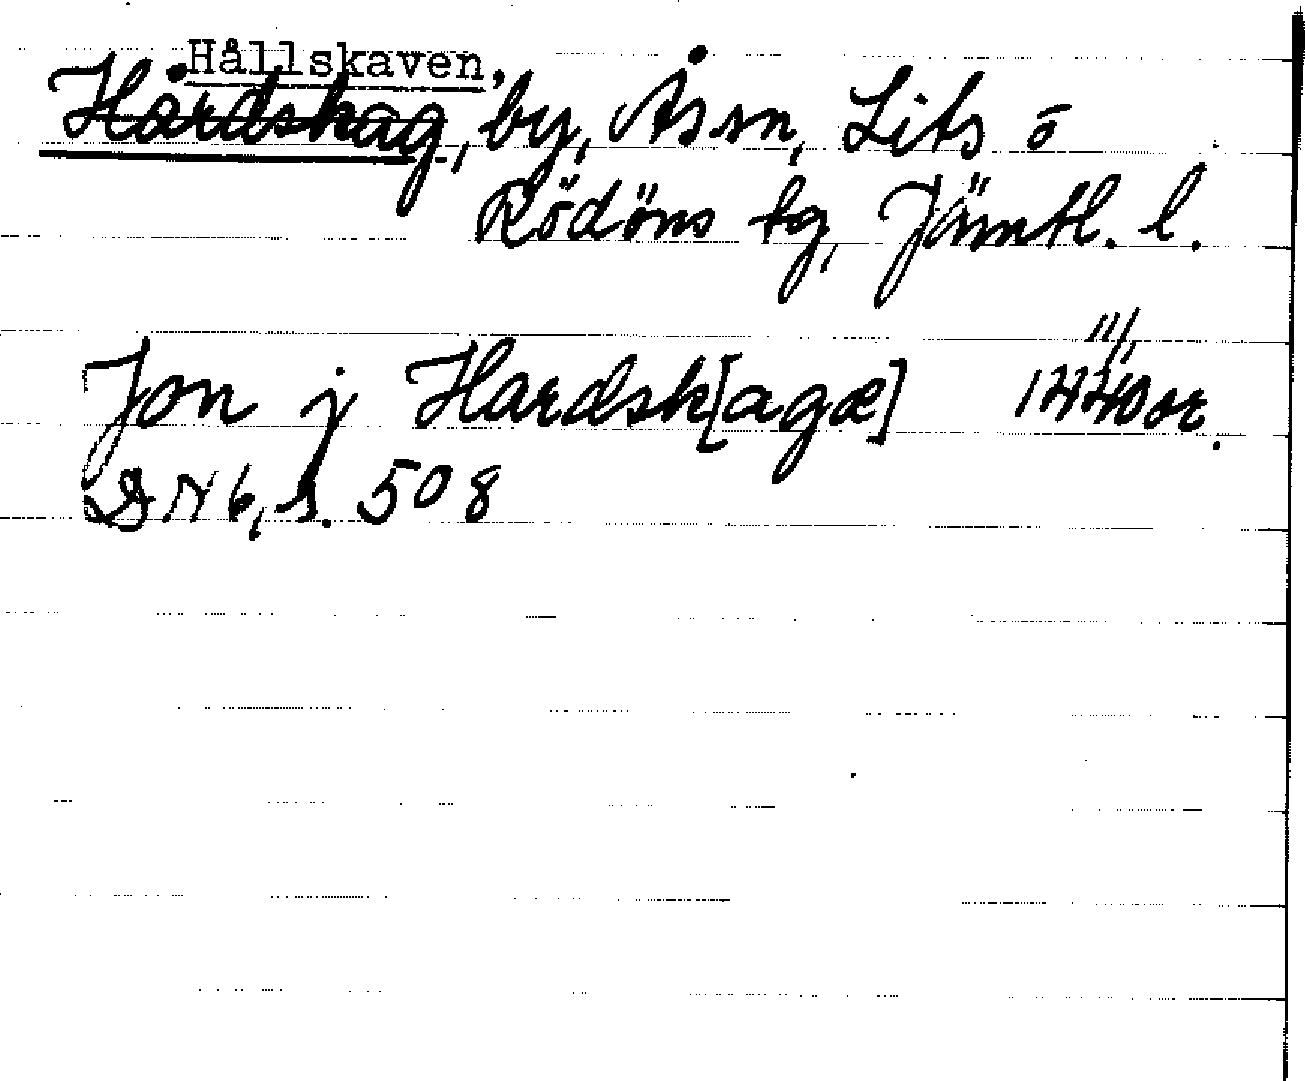 Hållskaven,
Hårdskag, by, Ås sn, Lits o
Rödöns tg, Jämtl. l.
Jon j Hardsk[agæ] 1440 or.
DN 6, s. 508